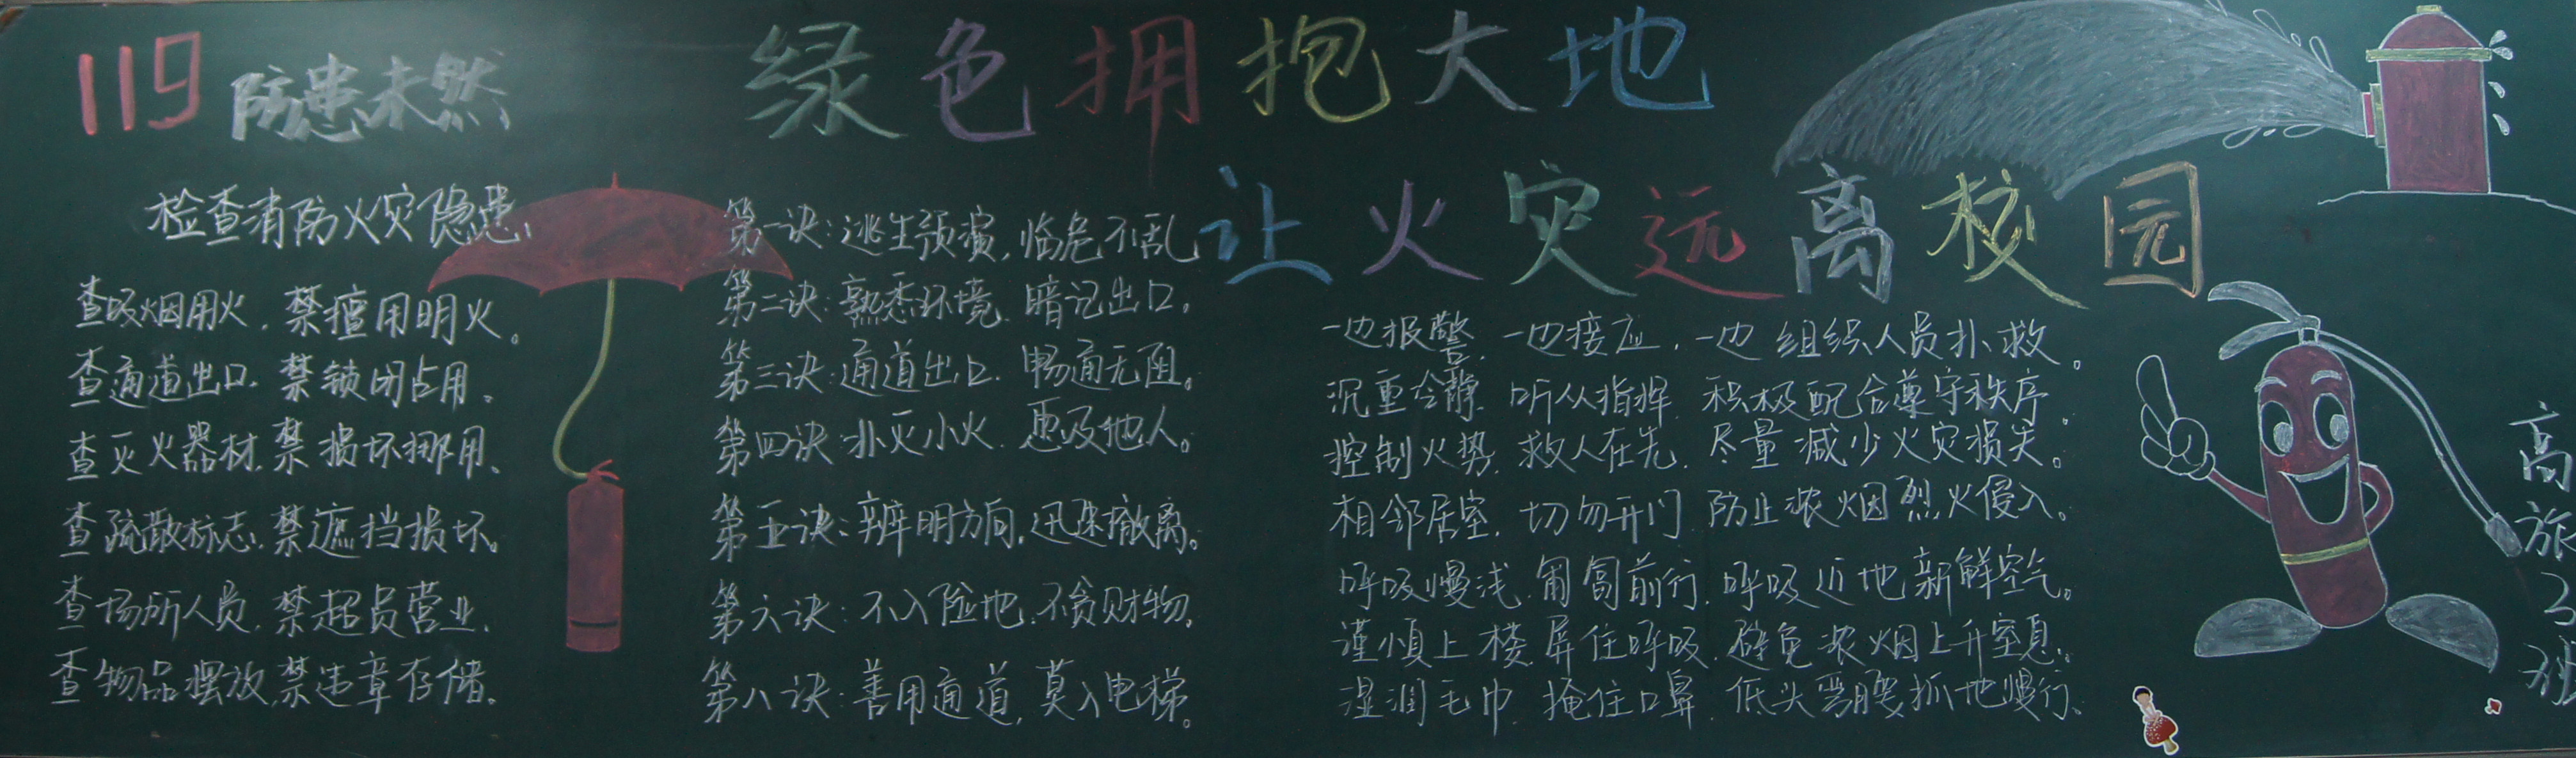 119 防患未然
绿色拥抱大地
让火灾远离校园
检查消防火灾隐患
查吸烟用火，禁擅用明火。
查通道出口，禁锁闭占用。
查灭火器材，禁损坏挪用、
查疏散标志，禁遮挡损坏。
查场所人员，禁超员营业.
查物品摆放，禁违章存储。
第一诀：逃生预演，临危不乱
第二诀：熟悉环境，暗记出口.
第三诀：通道出口，畅通无阻。
第四诀：扑灭小火，惠及他人。
第五诀：辨明方向，迅速撤离。
第六诀：不入险地，不贪财物.
第八诀：善用通道，莫入电梯。
一边报警，一边接应，一边组织人员扑救。
沉重冷静，听从指挥，积极配合遵守秩序.
控制火势，救人在先，尽量减少火灾损失。
相邻居室，切勿开门，防止浓烟烈火侵入。
呼吸慢浅，匍匐前行，呼吸近地新鲜空气。
谨慎上楼，屏住呼吸，避免浓烟上升窒息。
湿润毛巾，掩住口鼻，低头弯腰抓地慢行。
高旅2班